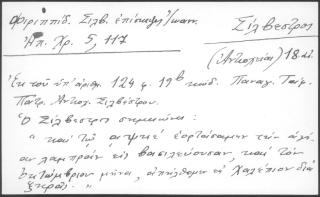 Φιριππίδ. Σιλβ. ἐπίσκεψ/Ἰωαν. Σίλβεστρος
Ἠπ. Χρ. 5, 117 (Ἀντιοχείας) 18 αἰ.
Ἐκ τοῦ ὑπ' ἀριθμ. 124 φ. 19β κώδ. Παναγ. Τάφ.
Πατρ. Ἀντιοχ. Σιλβέστρου.
Ὁ Σίλβεστρος σημειώνει:
"καὶ τῷ αψμε ἑορτάσαμεν τὴν ἁγίαν
λαμπρὰν εἰς βασιλεύουσαν, καὶ τὸν
ὀκτώμβριον μῆνα, ἀπήλθομεν εἰς Χαλέπιον διὰ
ξηρᾶς."